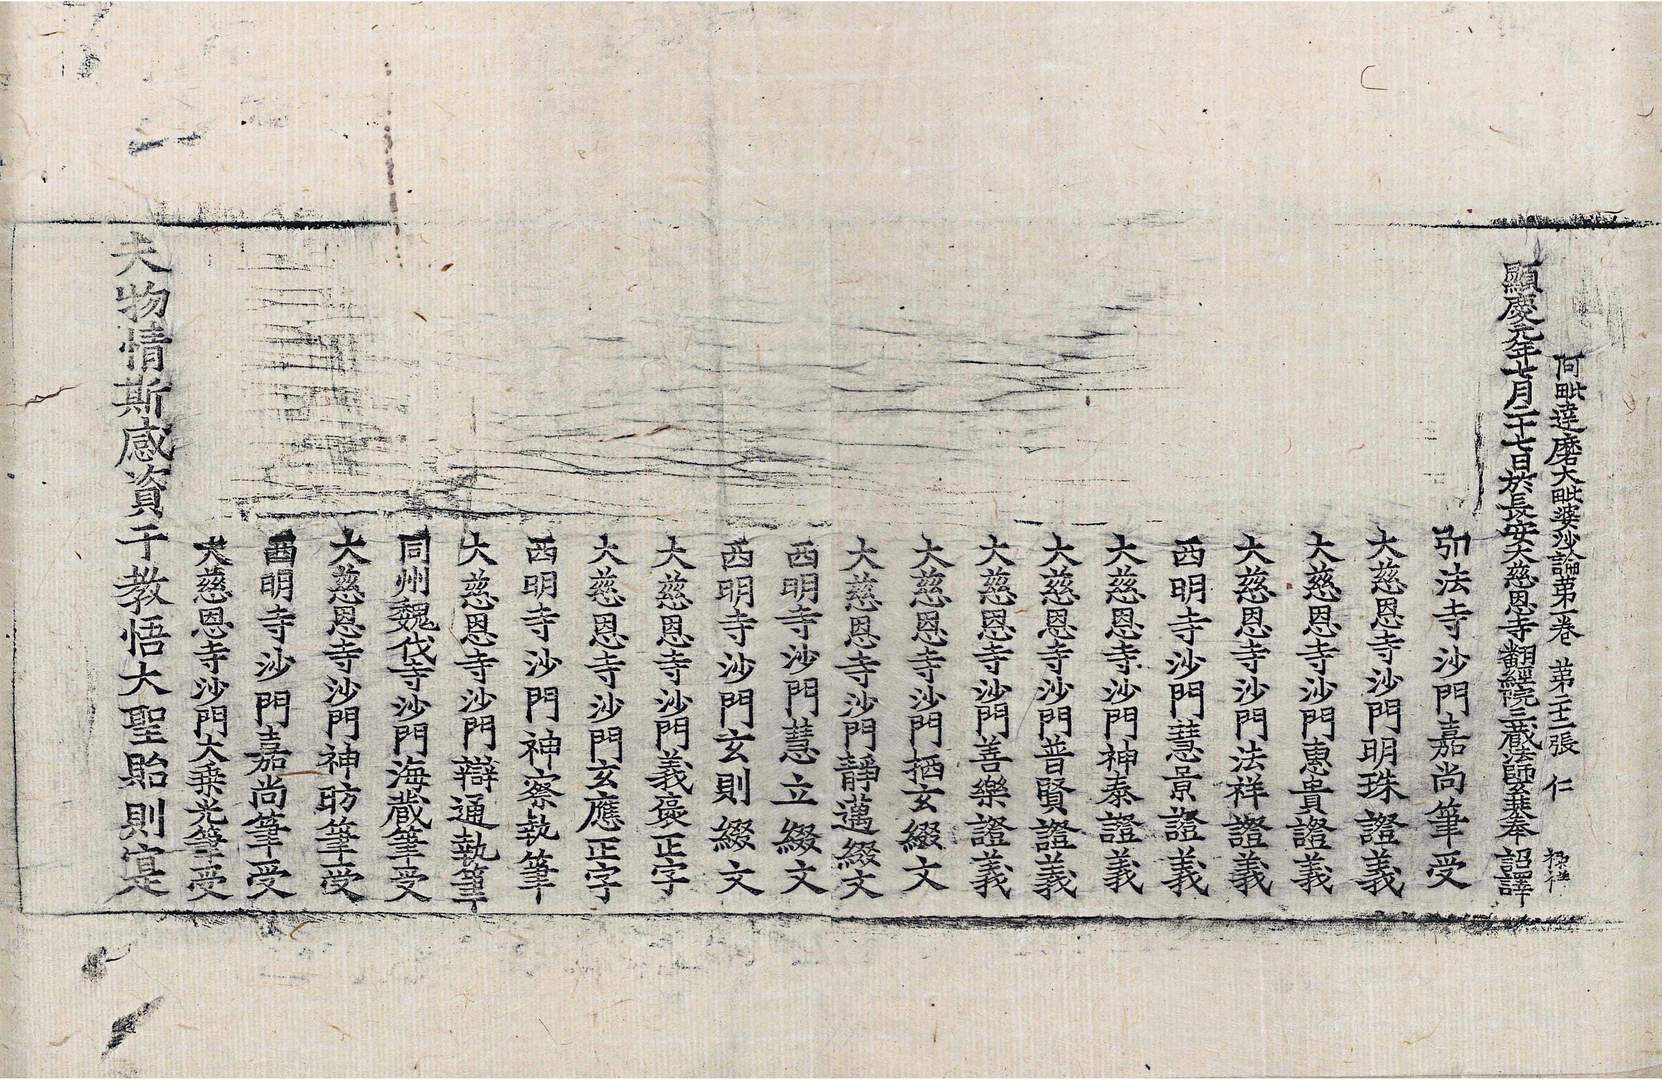 阿毗達磨大毗婆沙論第一卷 第二十二張 仁
顯慶元年七月二十七日於長安大慈恩寺翻經院三藏法師玄奘奉 詔譯
弘法寺沙門嘉尚筆受
大慈恩寺沙門明珠證義
大慈恩寺沙門惠貴證義
大慈恩寺沙門法祥證義
西明寺沙門慧景證義
大慈恩寺沙門神泰證義
大慈恩寺沙門普賢證義
大慈恩寺沙門善樂證義
大慈恩寺沙門栖玄綴文
大慈恩寺沙門靜邁綴文
西明寺沙門慧立綴文
西明寺沙門玄則綴文
大慈恩寺沙門義褒正字
大慈恩寺沙門玄應正字
西明寺沙門神察執筆
大慈恩寺沙門辯通執筆
同州魏伐寺沙門海藏筆受
大慈恩寺沙門神昉筆受
西明寺沙門嘉尚筆受
大慈恩寺沙門大乘光筆受
夫物情斯感資于教悟大聖貽則寔